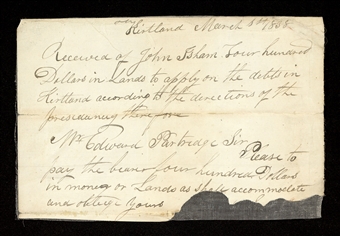 Kirtland March 1838
Received of John Isham Four hundred
Dollars in Lands to apply on the debts in
Kirtland according to the directions of the
presedancy there one
Mr Edward Partridge Sir Please to
pay the bearer four hundred Dollars
in money or Lands as shall accommodate
and oblige yours